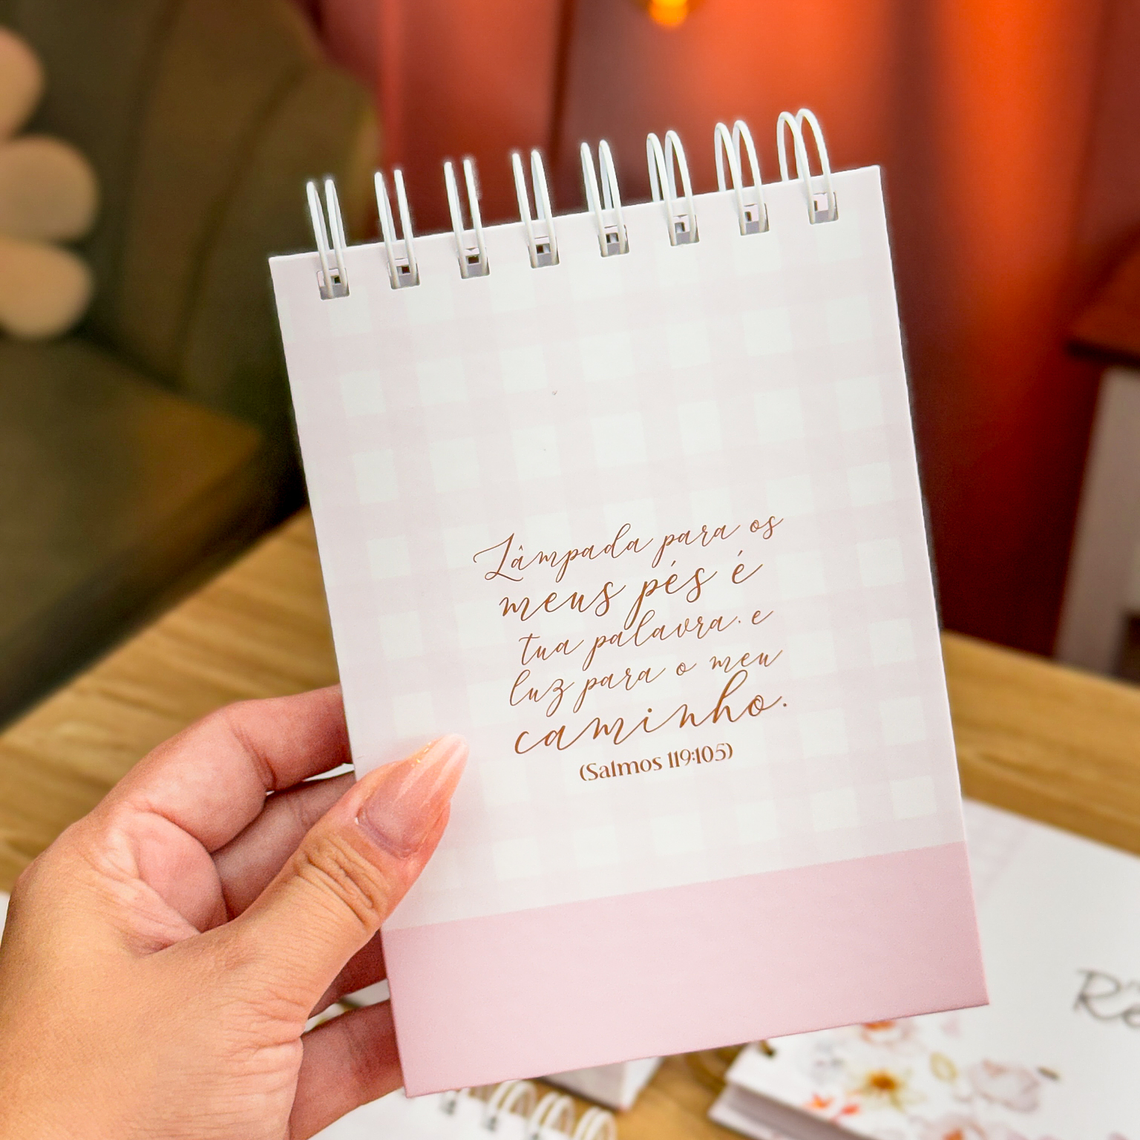 Lâmpada para os
meus pés é
tua palavra. e
luz para o meu
caminho.
(Salmos 119:105)